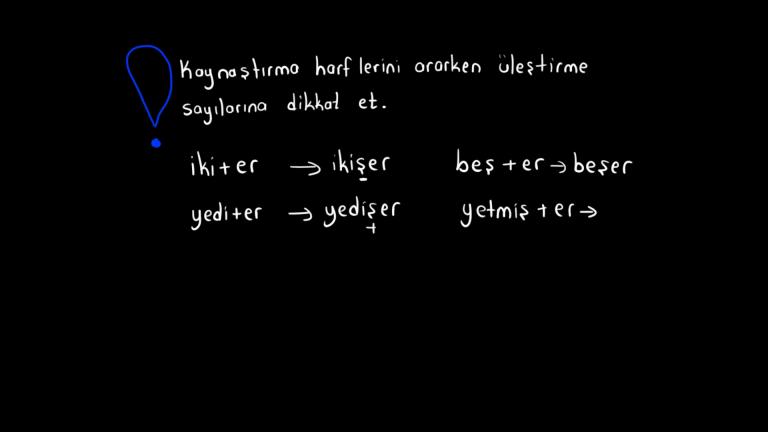 Kaynaştırma harflerini ararken üleştirme
sayılarına dikkat et.
iki+er → ikişer beş+er → beşer
yedi+er → yedişer yetmiş+er →
+